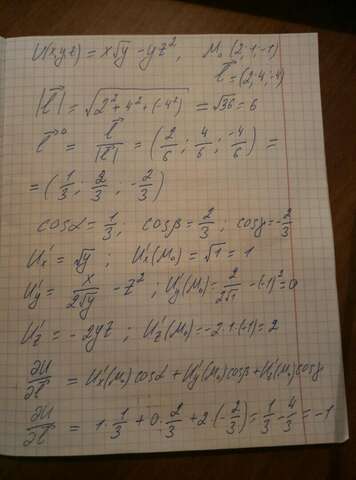 U(x,y,z) = x√y - yz², M₀(2; 1; -1)
l⃗ = (2; 4; -4)
|l⃗| = √(2² + 4² + (-4²)) = √36 = 6
l⃗° = l⃗/|l⃗| = (2/6; 4/6; -4/6) =
= (1/3; 2/3; -2/3)
cosα = 1/3, cosβ = 2/3; cosγ = -2/3
U'x = √y; U'x(M₀) = √1 = 1
U'y = x/(2√y) - z²; U'y(M₀) = 2/(2√1) - (-1)² = 0
U'z = -2yz; U'z(M₀) = -2·1·(-1) = 2
∂U/∂l⃗ = U'x(M₀)cosα + U'y(M₀)cosβ + U'z(M₀)cosγ
∂U/∂l⃗ = 1·1/3 + 0·2/3 + 2·(-2/3) = 1/3 - 4/3 = -1